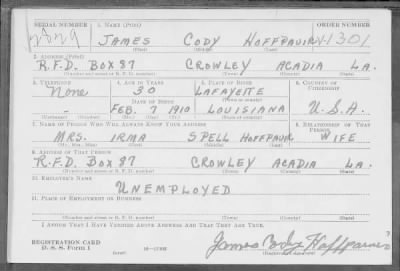 SERIAL NUMBER 1. NAME (Print) ORDER NUMBER
JAMES CODY HOFFPAUIR V-1301
(First) (Middle) (Last)
2. ADDRESS (Print)
R.F.D. BOX 87 CROWLEY ACADIA LA.
(Number and street or R. F. D. number) (Town) (County) (State)
3. TELEPHONE 4. AGE IN YEARS 5. PLACE OF BIRTH 6. COUNTRY OF CITIZENSHIP
None 30 LAFAYETTE
DATE OF BIRTH
- FEB. 7 1910 LOUISIANA U.S.A.
7. NAME OF PERSON WHO WILL ALWAYS KNOW YOUR ADDRESS 8. RELATIONSHIP OF THAT PERSON
MRS. IRMA SPELL HOFFPAUIR WIFE
(Mr., Mrs., Miss) (First) (Middle) (Last)
9. ADDRESS OF THAT PERSON
R.F.D. BOX 87 CROWLEY ACADIA LA.
(Number and street or R. F. D. number) (Town) (County) (State)
10. EMPLOYER'S NAME
UNEMPLOYED
11. PLACE OF EMPLOYMENT OR BUSINESS
(Number and street or R. F. D. number) (Town) (County) (State)
I AFFIRM THAT I HAVE VERIFIED ABOVE ANSWERS AND THAT THEY ARE TRUE.
REGISTRATION CARD
D. S. S. Form 1 (over) James Cody Hoffpauir